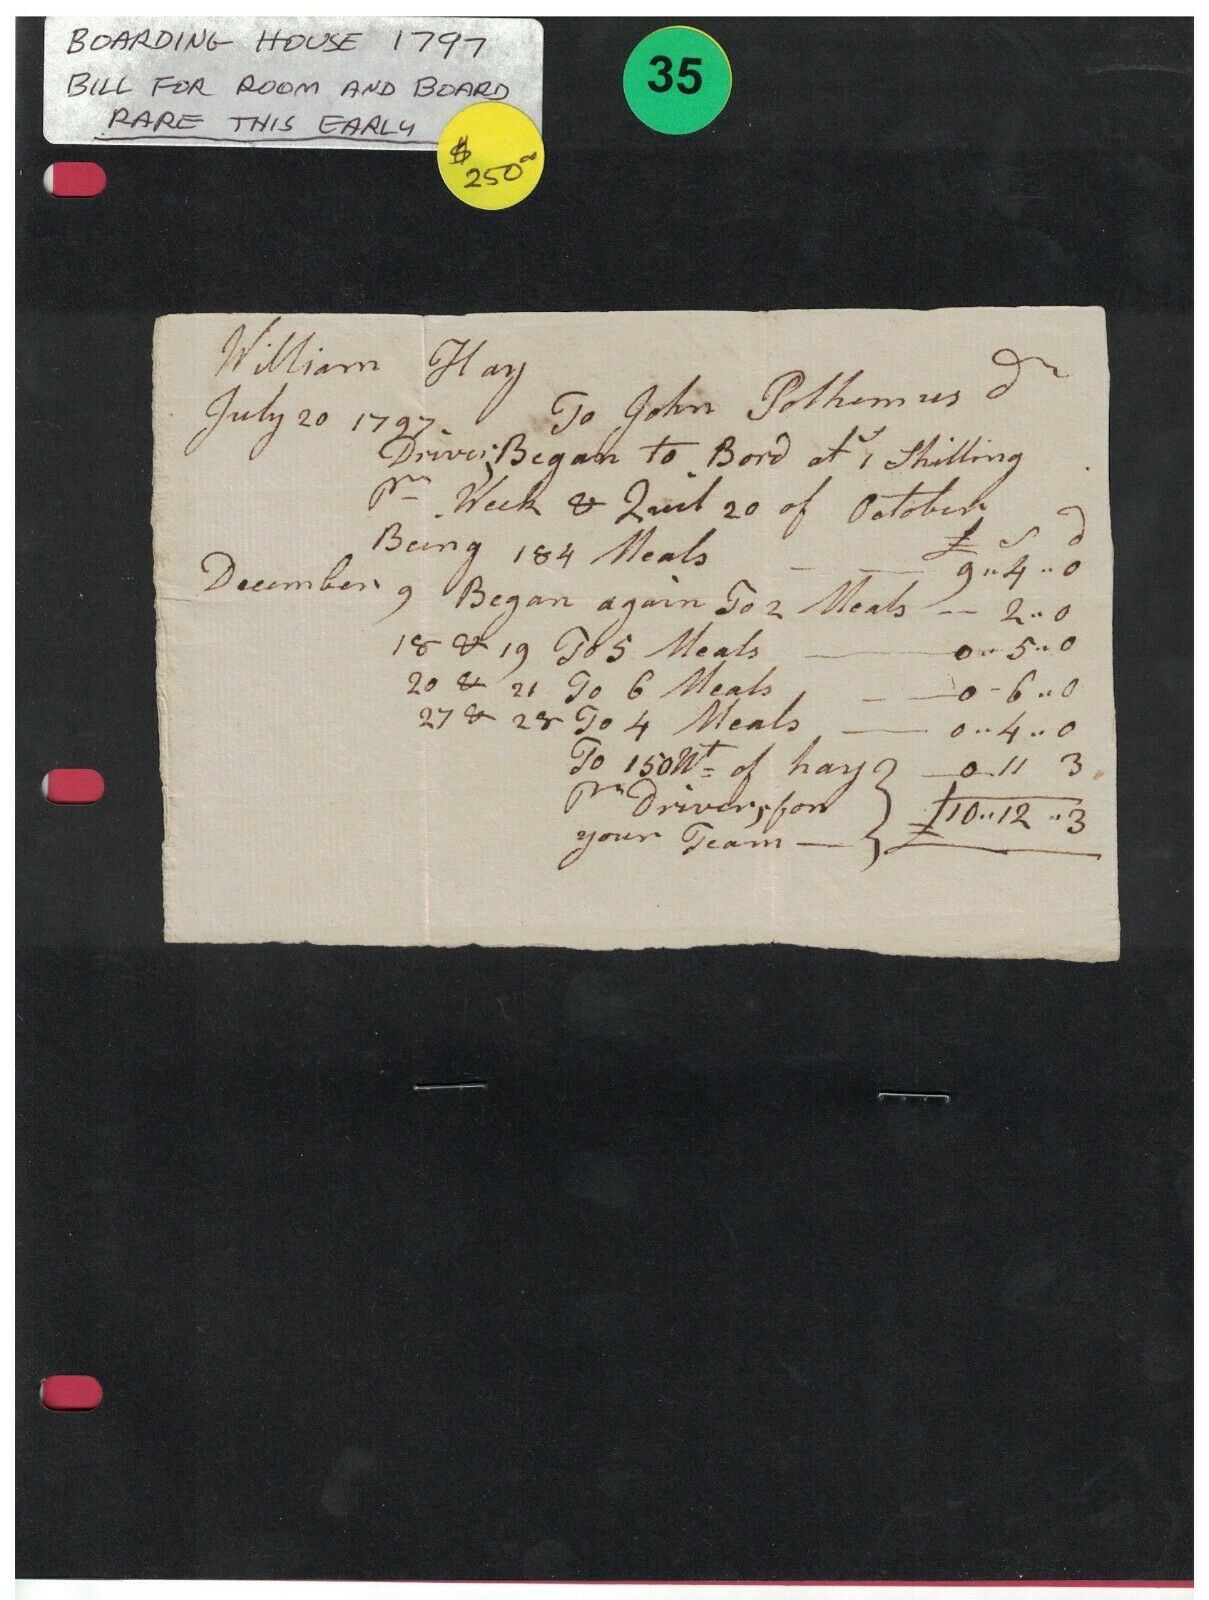 BOARDING HOUSE 1797
BILL FOR ROOM AND BOARD
RARE THIS EARLY
$
250⁰⁰
35
William Hay
July 20 1797 To John Polhemus Dr
Driver, Began to Bord at 1 Shilling
pr Week & Quit 20 of October
£ S d
Being 184 Meals — — 9 .. 4 .. 0
December 9 Began again To 2 Meals — 2 .. 0
18 & 19 To 5 Meals — 0 .. 5 .. 0
20 & 21 To 6 Meals — — 0 - 6 .. 0
27 & 28 To 4 Meals — 0 .. 4 .. 0
To 150 Wt of hay — 0 .. 11 3
pr Driver, for
your Team — £10 .. 12 .. 3